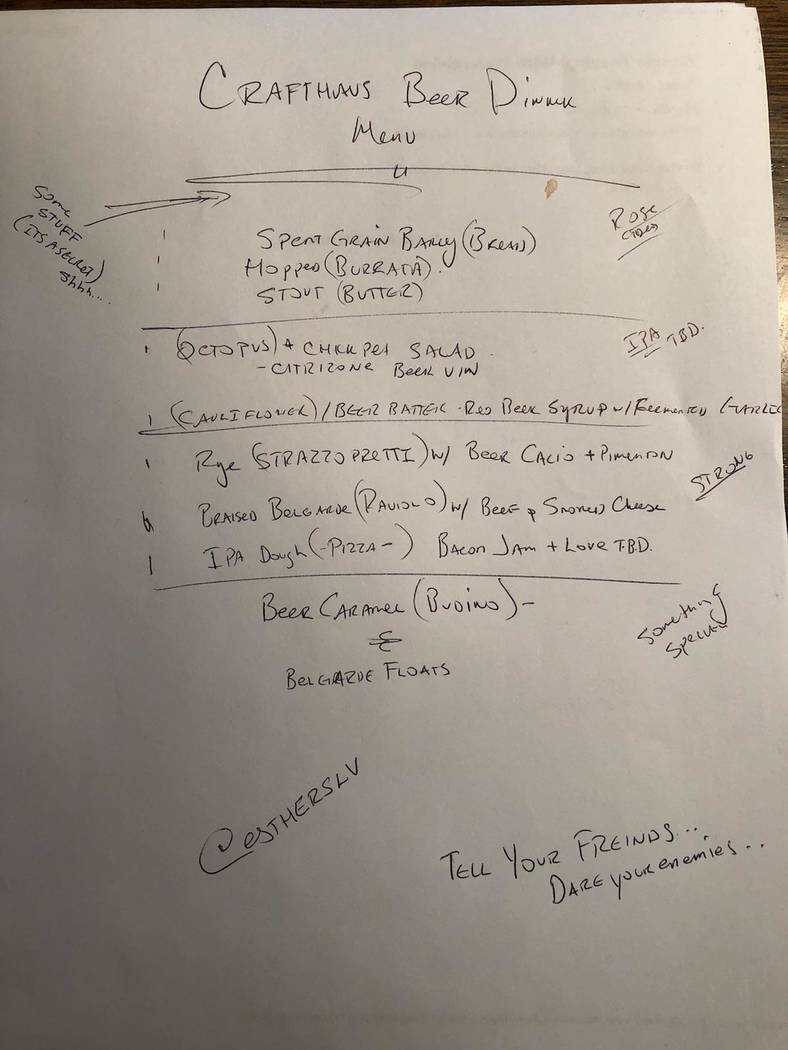 CRAFTHAUS BEER DINNER
MENU
SOME
STUFF
(ITS A SECRET)
Shhh....
ROSE
SPENT GRAIN BARLY (BREAD)
HOPPED (BURRATA)
STOUT (BUTTER)
(OCTOPUS) + CHICK PEA SALAD
- CITRIZONE BEER VIN
IPA TBD.
(CAULIFLOWER) / BEER BATTER - RED BEER SYRUP w/ FERMENTED GARLIC
Rye (STRAZZOPRETTI) w/ BEER CACIO + PIMENTON
STRONG
BRAISED BELGARDE (RAVIOLO) w/ BEEF & SMOKED CHEESE
IPA Dough (-PIZZA-) BACON JAM + LOVE T.B.D.
BEER CARAMEL (BUDINO) -
&
BELGARDE FLOATS
Something
Special
@ESTHERSLV
TELL YOUR FREINDS...
DARE your enemies...